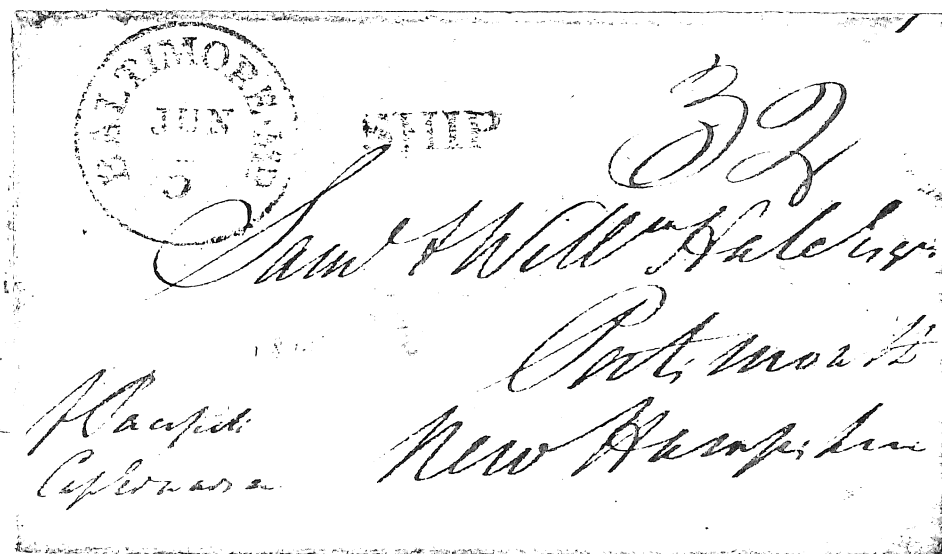 BALTIMORE MD
JUN
5
SHIP
32
Saml & Willm Hale Esqr.
Portsmouth
New Hampshire